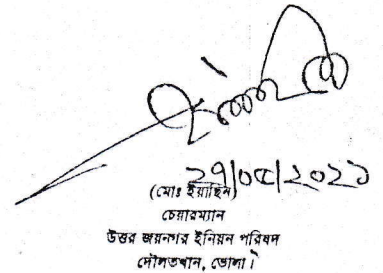 ২৭/০৫/২০২১
(মোঃ ইয়াছিন)
চেয়ারম্যান
উত্তর জয়নগর ইনিয়ন পরিষদ
দৌলতখান, ভোলা।